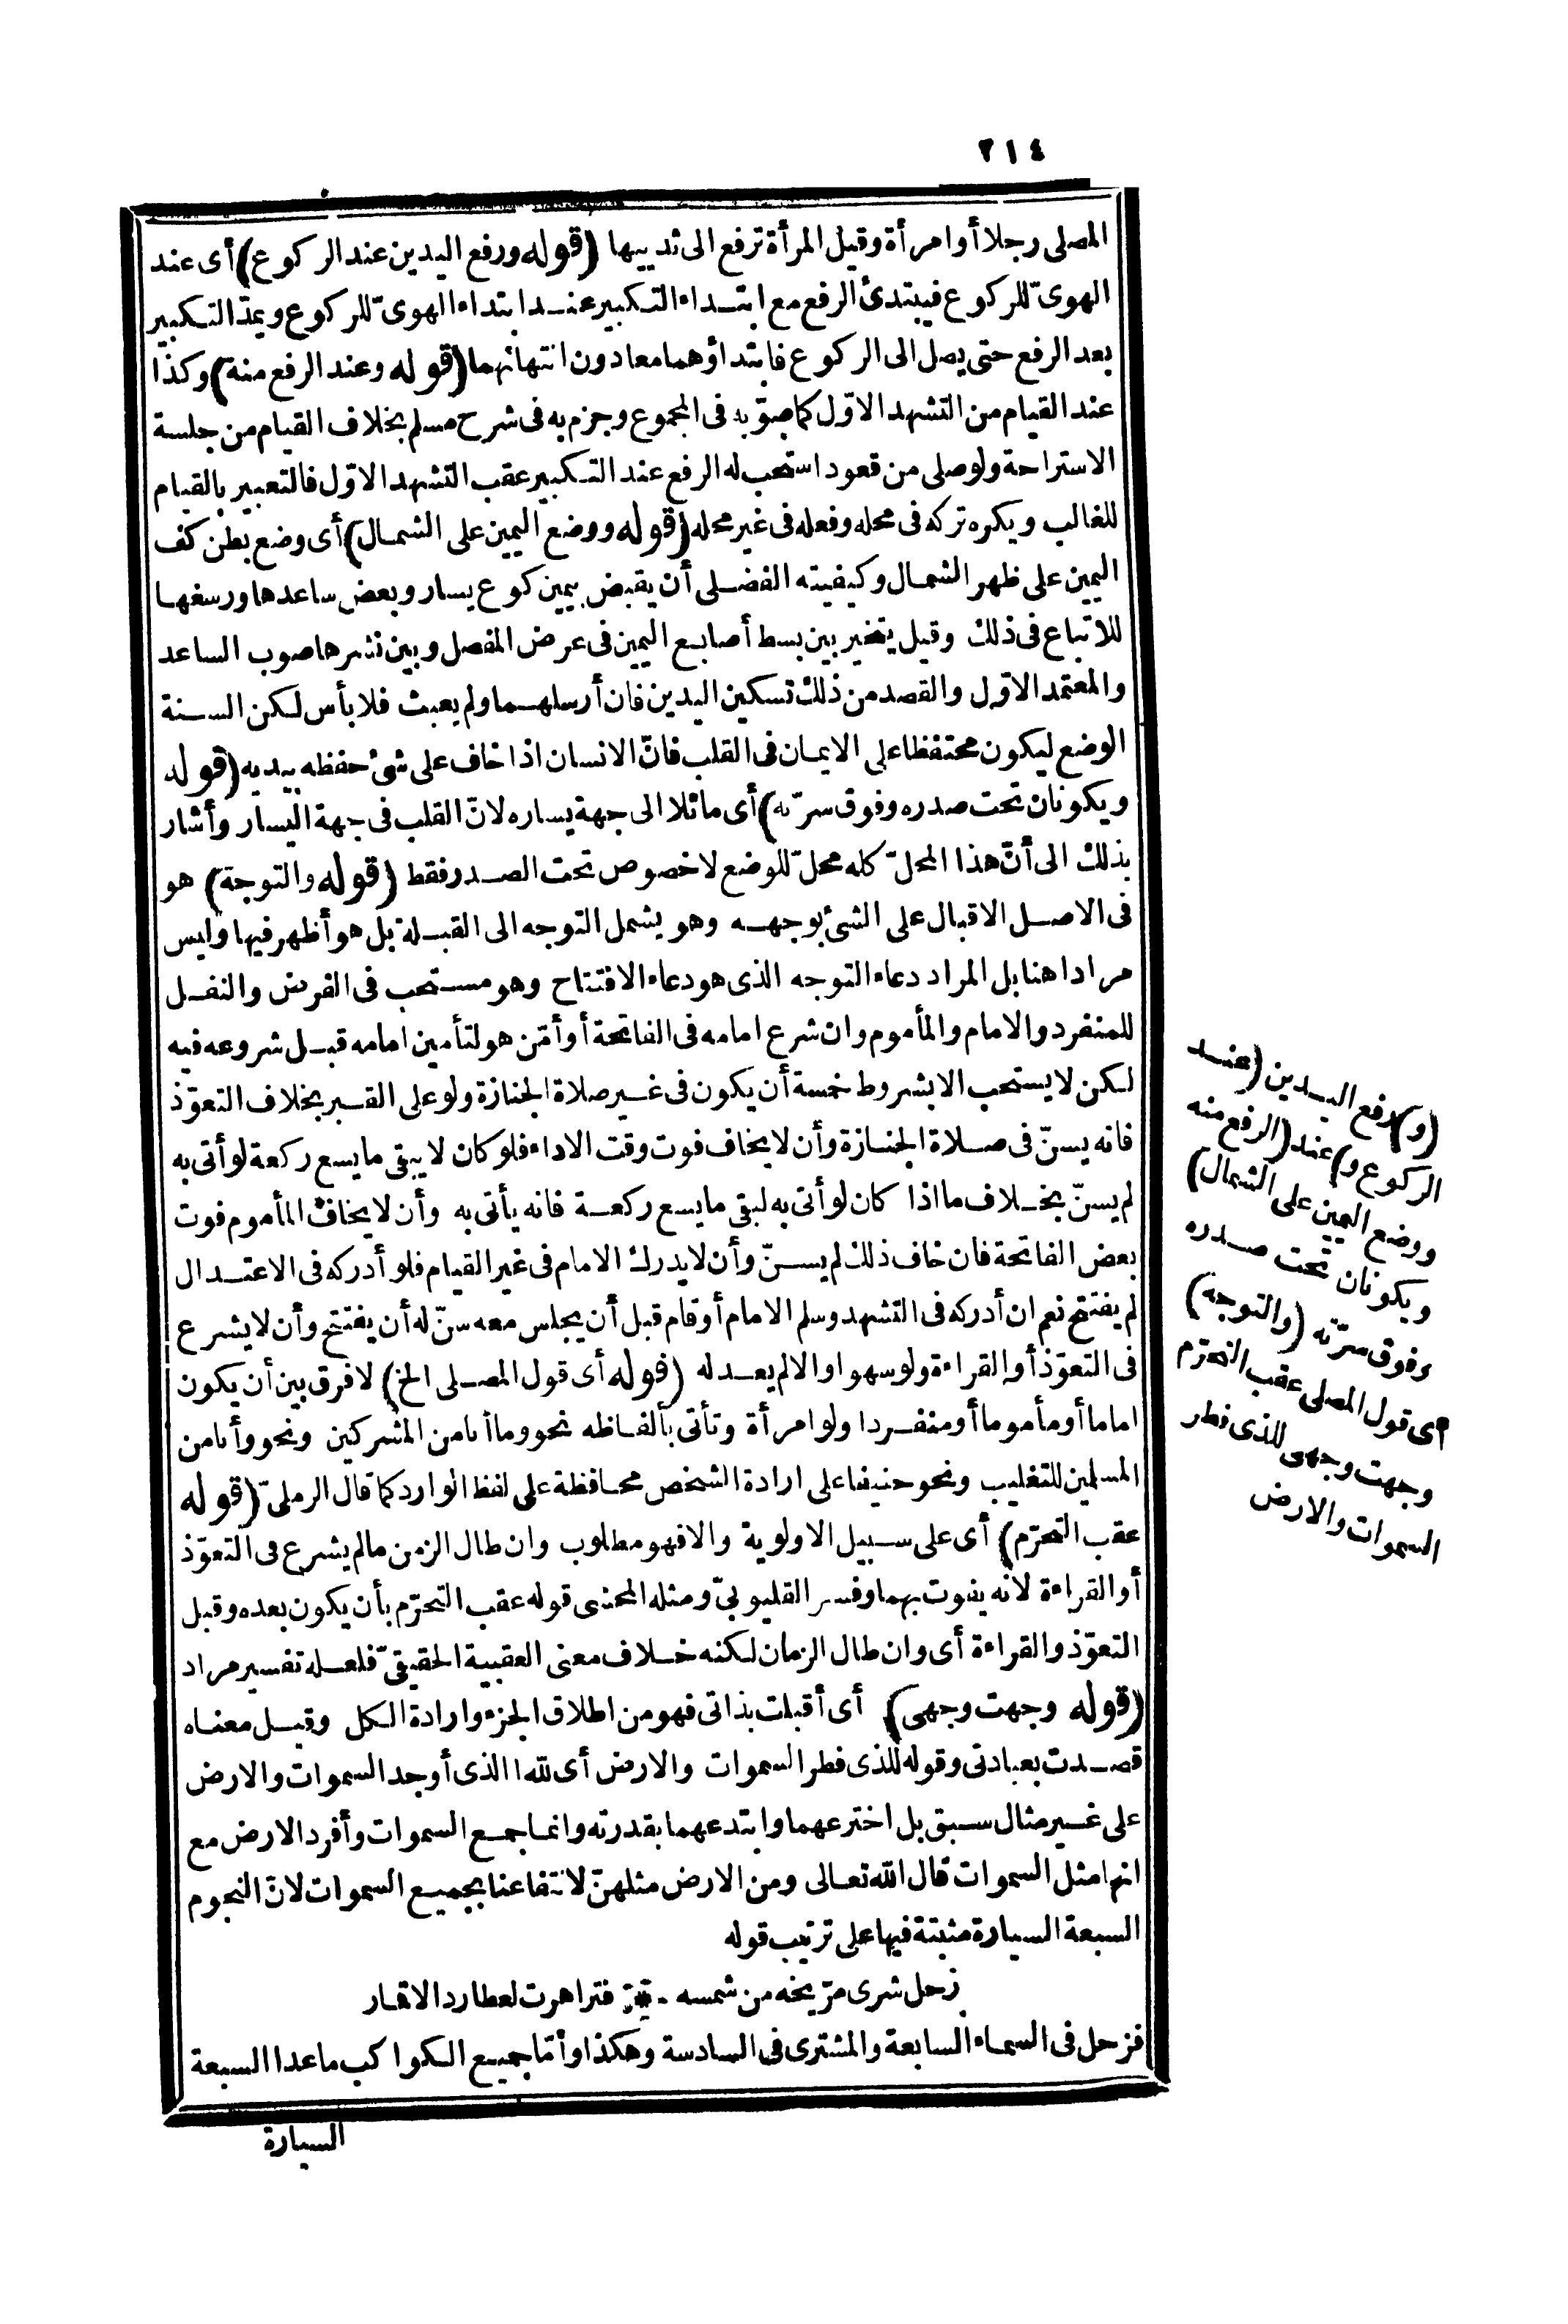 ٢١٤
المصلى رجلا أو امرأة وقيل المرأة ترفع الى ثدييها (قوله ورفع اليدين عند الركوع) أى عند
الهوىّ للركوع فيبتدئ الرفع مع ابتداء التكبير عند ابتداء الهوىّ للركوع ويمدّ التكبير
بعد الرفع حتى يصل الى الركوع فابتداؤهما معا دون انتهائهما (قوله وعند الرفع منه) وكذا
عند القيام من التشهد الاوّل كما صوّبه فى المجموع وجزم به فى شرح مسلم بخلاف القيام من جلسة
الاستراحة ولو صلى من قعود استحب له الرفع عند التكبير عقب التشهد الاوّل فالتعبير بالقيام
للغالب ويكره تركه فى محله وفعله فى غير محله (قوله ووضع اليمين على الشمال) أى وضع بطن كف
اليمين على ظهر الشمال وكيفيته الفضلى أن يقبض بيمين كوع يسار وبعض ساعدها ورسغها
للاتباع فى ذلك وقيل يتخير بين بسط أصابع اليمين فى عرض المفصل وبين نشرها صوب الساعد
والمعتمد الاوّل والقصد من ذلك تسكين اليدين فان أرسلهما ولم يعبث فلا بأس لكن السنة
الوضع ليكون محتفظا على الايمان فى القلب فانّ الانسان اذا خاف على شئ حفظه بيديه (قوله
ويكونان تحت صدره وفوق سرّته) أى مائلا الى جهة يساره لانّ القلب فى جهة اليسار وأشار
بذلك الى أنّ هذا المحلّ كله محلّ للوضع لا خصوص تحت الصدر فقط (قوله والتوجه) هو
فى الاصل الاقبال على الشئ بوجهه وهو يشمل التوجه الى القبلة بل هو أظهر فيها وليس
مرادا هنا بل المراد دعاء التوجه الذى هو دعاء الافتتاح وهو مستحب فى الفرض والنفل
للمنفرد والامام والمأموم وان شرع امامه فى الفاتحة أو أمّن هو لتأمين امامه قبل شروعه فيه
لكن لا يستحب الا بشروط خمسة أن يكون فى غير صلاة الجنازة ولو على القبر بخلاف التعوّذ
فانه يسنّ فى صلاة الجنازة وأن لا يخاف فوت وقت الاداء فلو كان لا يبقى ما يسع ركعة لو أتى به
لم يسنّ بخلاف ما اذا كان لو أتى به لبقى ما يسع ركعة فانه يأتى به وأن لا يخاف المأموم فوت
بعض الفاتحة فان خاف ذلك لم يسنّ وأن لا يدرك الامام فى غير القيام فلو أدركه فى الاعتدال
لم يفتتح نعم ان أدركه فى التشهد وسلم الامام أو قام قبل أن يجلس معه سنّ له أن يفتتح وأن لا يشرع
فى التعوّذ أو القراءة ولو سهوا والا لم يعد له (قوله أى قول المصلى الخ) لا فرق بين أن يكون
اماما أو مأموما أو منفردا ولو امرأة وتأتى بألفاظه نحو وما أنا من المشركين ونحو وأنا من
المسلمين للتغليب ونحو حنيفا على ارادة الشخص محافظة على لفظ الوارد كما قال الرملىّ (قوله
عقب التحرّم) أى على سبيل الاولوية والا فهو مطلوب وان طال الزمن ما لم يشرع فى التعوّذ
أو القراءة لانه يفوت بهما وفسر القليوبىّ ومثله المحشى قوله عقب التحرّم بأن يكون بعده وقبل
التعوّذ والقراءة أى وان طال الزمان لكنه خلاف معنى العقبية الحقيقىّ فلعله تفسير مراد
(قوله وجهت وجهى) أى أقبلت بذاتى فهو من اطلاق الجزء وارادة الكل وقيل معناه
قصدت بعبادتى وقوله للذى فطر السموات والارض أى لله الذى أوجد السموات والارض
على غير مثال سبق بل اخترعهما وابتدعهما بقدرته وانما جمع السموات وأفرد الارض مع
انها مثل السموات قال الله تعالى ومن الارض مثلهنّ لانتفاعنا بجميع السموات لانّ النجوم
السبعة السيارة مثبتة فيها على ترتيب قوله
زحل شرى مرّيخه من شمسه * فتزاهرت لعطارد الاقمار
فزحل فى السماء السابعة والمشترى فى السادسة وهكذا وأمّا جميع الكواكب ما عدا السبعة
السيارة
(و) رفع اليدين (عند
الركوع و) عند (الرفع منه
ووضع اليمين على الشمال)
ويكونان تحت صدره
وفوق سرّته (والتوجه)
أى قول المصلى عقب التحرّم
وجهت وجهى للذى فطر
السموات والارض